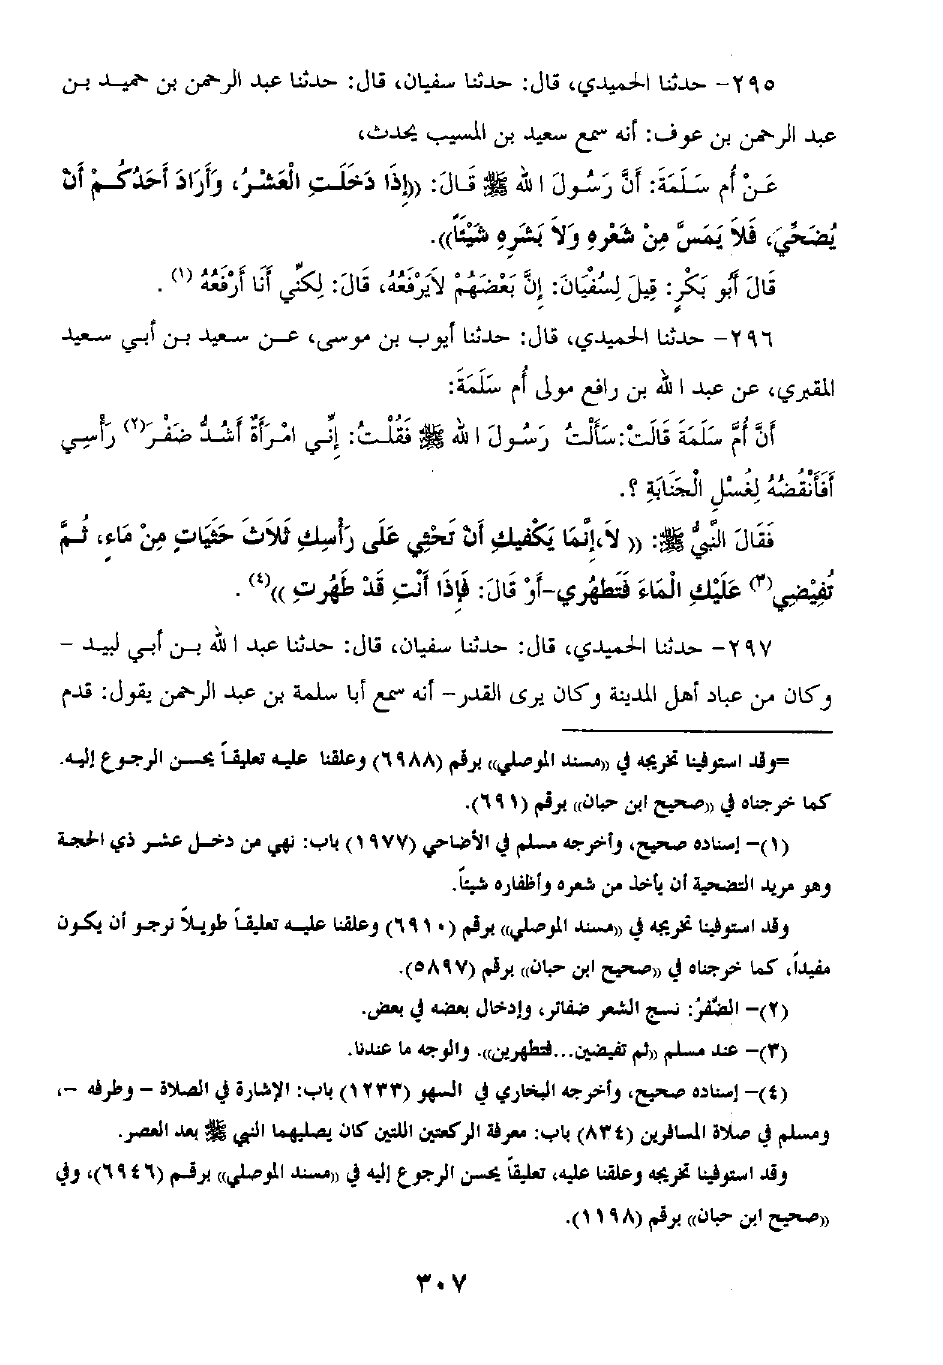 ٢٩٥- حدثنا الحميدي، قال: حدثنا سفيان، قال: حدثنا عبد الرحمن بن حميد بن
عبد الرحمن بن عوف: أنه سمع سعيد بن المسيب يحدث،
عَنْ أُم سَلَمَةَ: أَنَّ رَسُولَ الله ﷺ قَالَ: ((إِذَا دَخَلَتِ الْعَشْرُ، وَأَرَادَ أَحَدُكُمْ أَنْ
يُضَحِّيَ، فَلاَ يَمَسَّ مِنْ شَعْرِهِ وَلاَ بَشَرِهِ شَيْئاً)).
قَالَ أَبُو بَكْرٍ: قِيلَ لِسُفْيَانَ: إِنَّ بَعْضَهُمْ لاَيَرْفَعُهُ، قَالَ: لَكِنِّي أَنَا أَرْفَعُهُ (١) .
٢٩٦- حدثنا الحميدي، قال: حدثنا أيوب بن موسى، عن سعيد بن أبي سعيد
المقبري، عن عبد الله بن رافع مولى أُم سَلَمَةَ:
أَنَّ أُمَّ سَلَمَةَ قَالَتْ:سَأَلْتُ رَسُولَ الله ﷺ فَقُلْتُ: إِنِّي امْرَأَةٌ أَشُدُّ ضَفْرَ(٢) رَأْسِي
أَفَأَنْقُضُهُ لِغُسْلِ الْجَنَابَةِ ؟.
فَقَالَ النَّبِيُّ ﷺ: (( لاَ،إِنَّمَا يَكْفِيكِ أَنْ تَحْثِي عَلَى رَأْسِكِ ثَلاَثَ حَثَيَاتٍ مِنْ مَاءٍ، ثُمَّ
تُفِيْضِي(٣) عَلَيْكِ الْمَاءَ فَتَطْهُرِي-أَوْ قَالَ: فَإِذَا أَنْتِ قَدْ طَهُرْتِ ))(٤) .
٢٩٧- حدثنا الحميدي، قال: حدثنا سفيان، قال: حدثنا عبد الله بن أبي لبيد -
وكان من عباد أهل المدينة وكان يرى القدر- أنه سمع أبا سلمة بن عبد الرحمن يقول: قدم
=وقد استوفينا تخريجه في ((مسند الموصلي)) برقم (٦٩٨٨) وعلقنا عليه تعليقاً يحسن الرجوع إليه.
كما خرجناه في ((صحيح ابن حبان)) برقم (٦٩١).
(١)- إسناده صحيح، وأخرجه مسلم في الأضاحي (١٩٧٧) باب: نهي من دخل عشر ذي الحجة
وهو مريد التضحية أن يأخذ من شعره وأظفاره شيئاً.
وقد استوفينا تخريجه في ((مسند الموصلي)) برقم (٦٩١٠) وعلقنا عليه تعليقاً طويلاً نرجو أن يكون
مفيداً، كما خرجناه في ((صحيح ابن حبان)) برقم (٥٨٩٧).
(٢)- الضَّفرُ: نسج الشعر ضفائر، وإدخال بعضه في بعض.
(٣)- عند مسلم ((ثم تفيضين...فتطهرين)). والوجه ما عندنا.
(٤)- إسناده صحيح، وأخرجه البخاري في السهو (١٢٣٣) باب: الإشارة في الصلاة - وطرفه -،
ومسلم في صلاة المسافرين (٨٣٤) باب: معرفة الركعتين اللتين كان يصليهما النبي ﷺ بعد العصر.
وقد استوفينا تخريجه وعلقنا عليه، تعليقاً يحسن الرجوع إليه في ((مسند الموصلي)) برقم (٦٩٤٦)، وفي
((صحيح ابن حبان)) برقم (١١٩٨).
٣٠٧